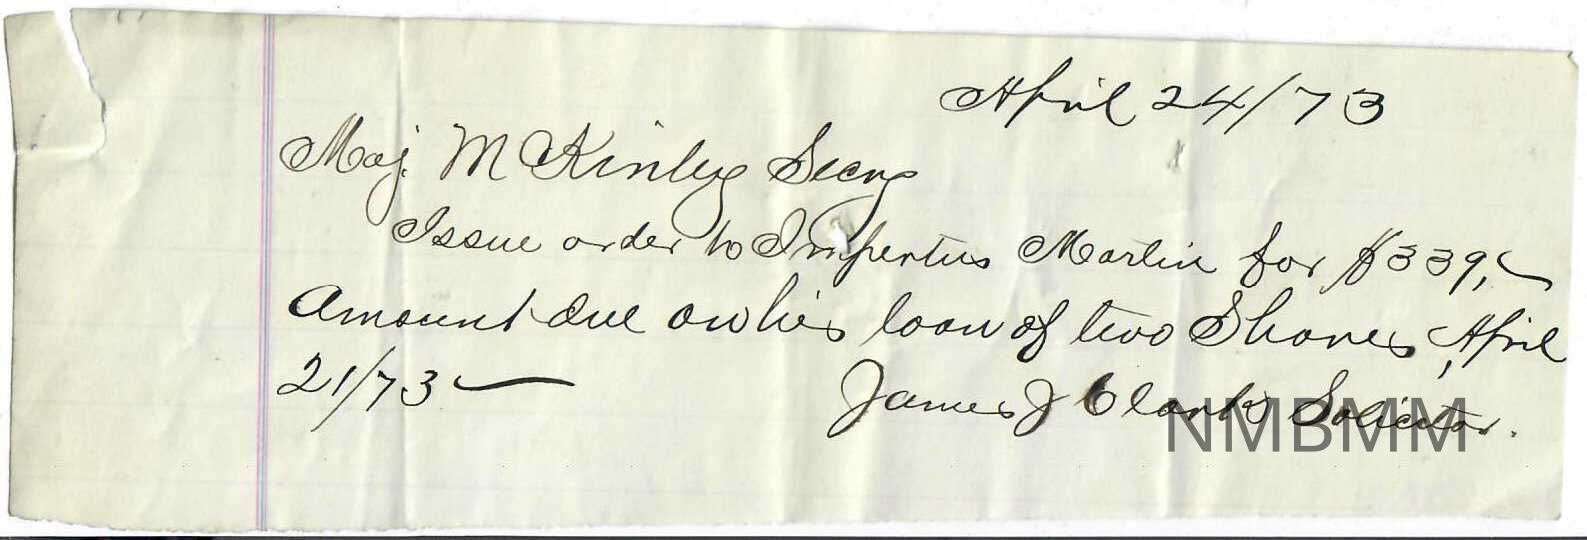 April 24/73
Maj. McKinley Secy
Issue order to Impertus Martin for $339,
Amount due on his loan of two Shares, April
21/73
James J Clark Solicitor.
NMBMM